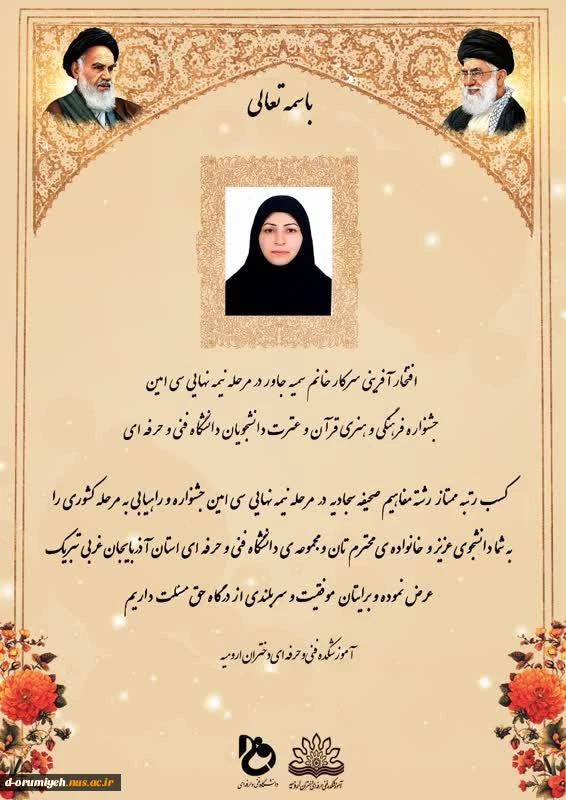 باسمه تعالی
افتخار آفرینی سرکار خانم سمیه جاور در مرحله نیمه نهایی سی امین
جشنواره فرهنگی و هنری قرآن و عترت دانشجویان دانشگاه فنی و حرفه ای
کسب رتبه ممتاز رشته مفاهیم صحیفه سجادیه در مرحله نیمه نهایی سی امین جشنواره و راهیابی به مرحله کشوری را
به شما دانشجوی عزیز و خانواده ی محترم تان و مجموعه ی دانشگاه فنی و حرفه ای استان آذربایجان غربی تبریک
عرض نموده و برایتان موفقیت و سربلندی از درگاه حق مسئلت داریم
آموزشکده فنی و حرفه ای دختران ارومیه
آموزشکده فنی و حرفه ای دختران ارومیه
دانشگاه فنی و حرفه ای
d-orumiyeh.nus.ac.ir